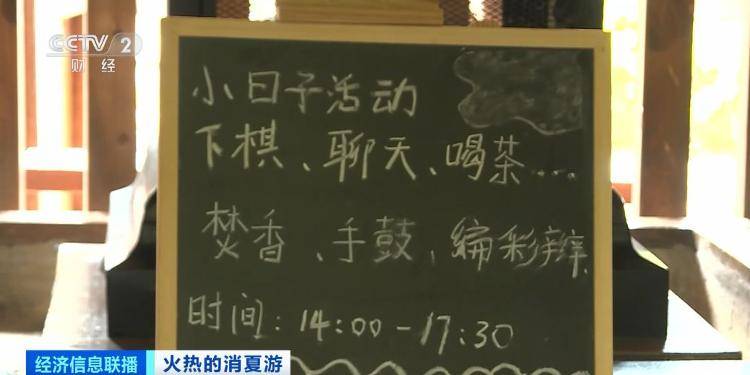 CCTV 2
财经
小日子活动
下棋、聊天、喝茶……
焚香、手鼓、编彩辫
时间：14:00-17:30
经济信息联播 火热的消夏游